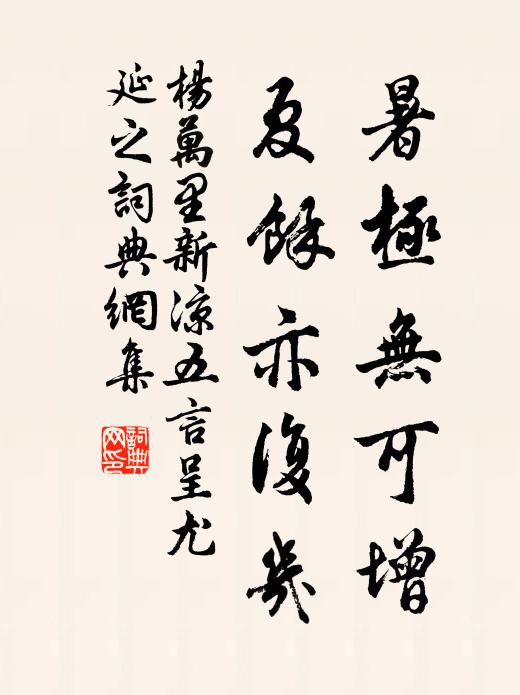 暑極無可增
夏餘亦復幾
楊萬里新涼五言呈尤
延之詞典網集
詞典
网印